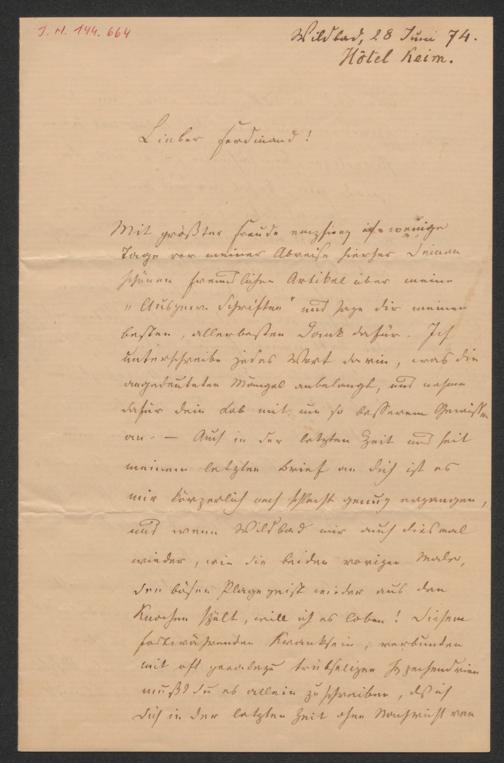 I. N. 144.664
Wildbad, 28 Juni 74.
Hôtel Keim.
Lieber Ferdinand!
Mit größter Freude empfing ich wenige
Tage vor meiner Abreise hierher Deinen
schönen freundlichen Artikel über meine
„Ausgew. Schriften" und sage dir meinen
besten, allerbesten Dank dafür. Ich
unterschreibe jedes Wort darin, was die
angedeuteten Mängel anbelangt, und nehme
dafür dein Lob mit um so besserem Gewissen
an. — Auch in der letzten Zeit und seit
meinem letzten Brief an dich ist es
mir körperlich noch schlecht genug ergangen,
und wenn Wildbad mir auch diesmal
wieder, wie die beiden vorigen Male,
den bösen Plagegeist wieder aus den
Knochen spült, will ich es loben! Diesem
fortwährenden Kranksein, verbunden
mit oft geradezu trübseligen Hypochondrien
mußt du es allein zuschreiben, daß ich
dich in der letzten Zeit ohne Nachricht von